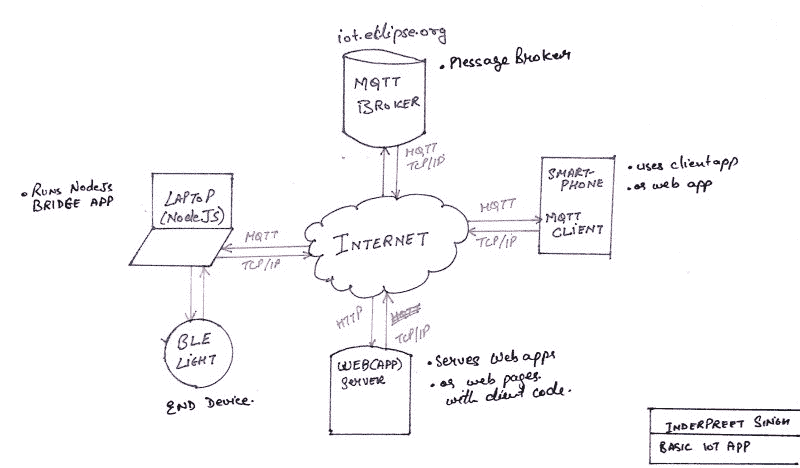 iot.eclipse.org
• Message Broker
MQTT
BROKER
MQTT
TCP/IP
• RUNS NodeJs
BRIDGE APP
LAPTOP
(NodeJS)
MQTT
TCP/IP
INTERNET
MQTT
TCP/IP
SMART-
PHONE
MQTT
CLIENT
• uses client app
• or web app
BLE
LIGHT
END Device.
HTTP
TCP/IP
WEB(APP)
Server
• Serves Web apps
• or web pages
with client code.
INDERPREET SINGH
BASIC IOT APP